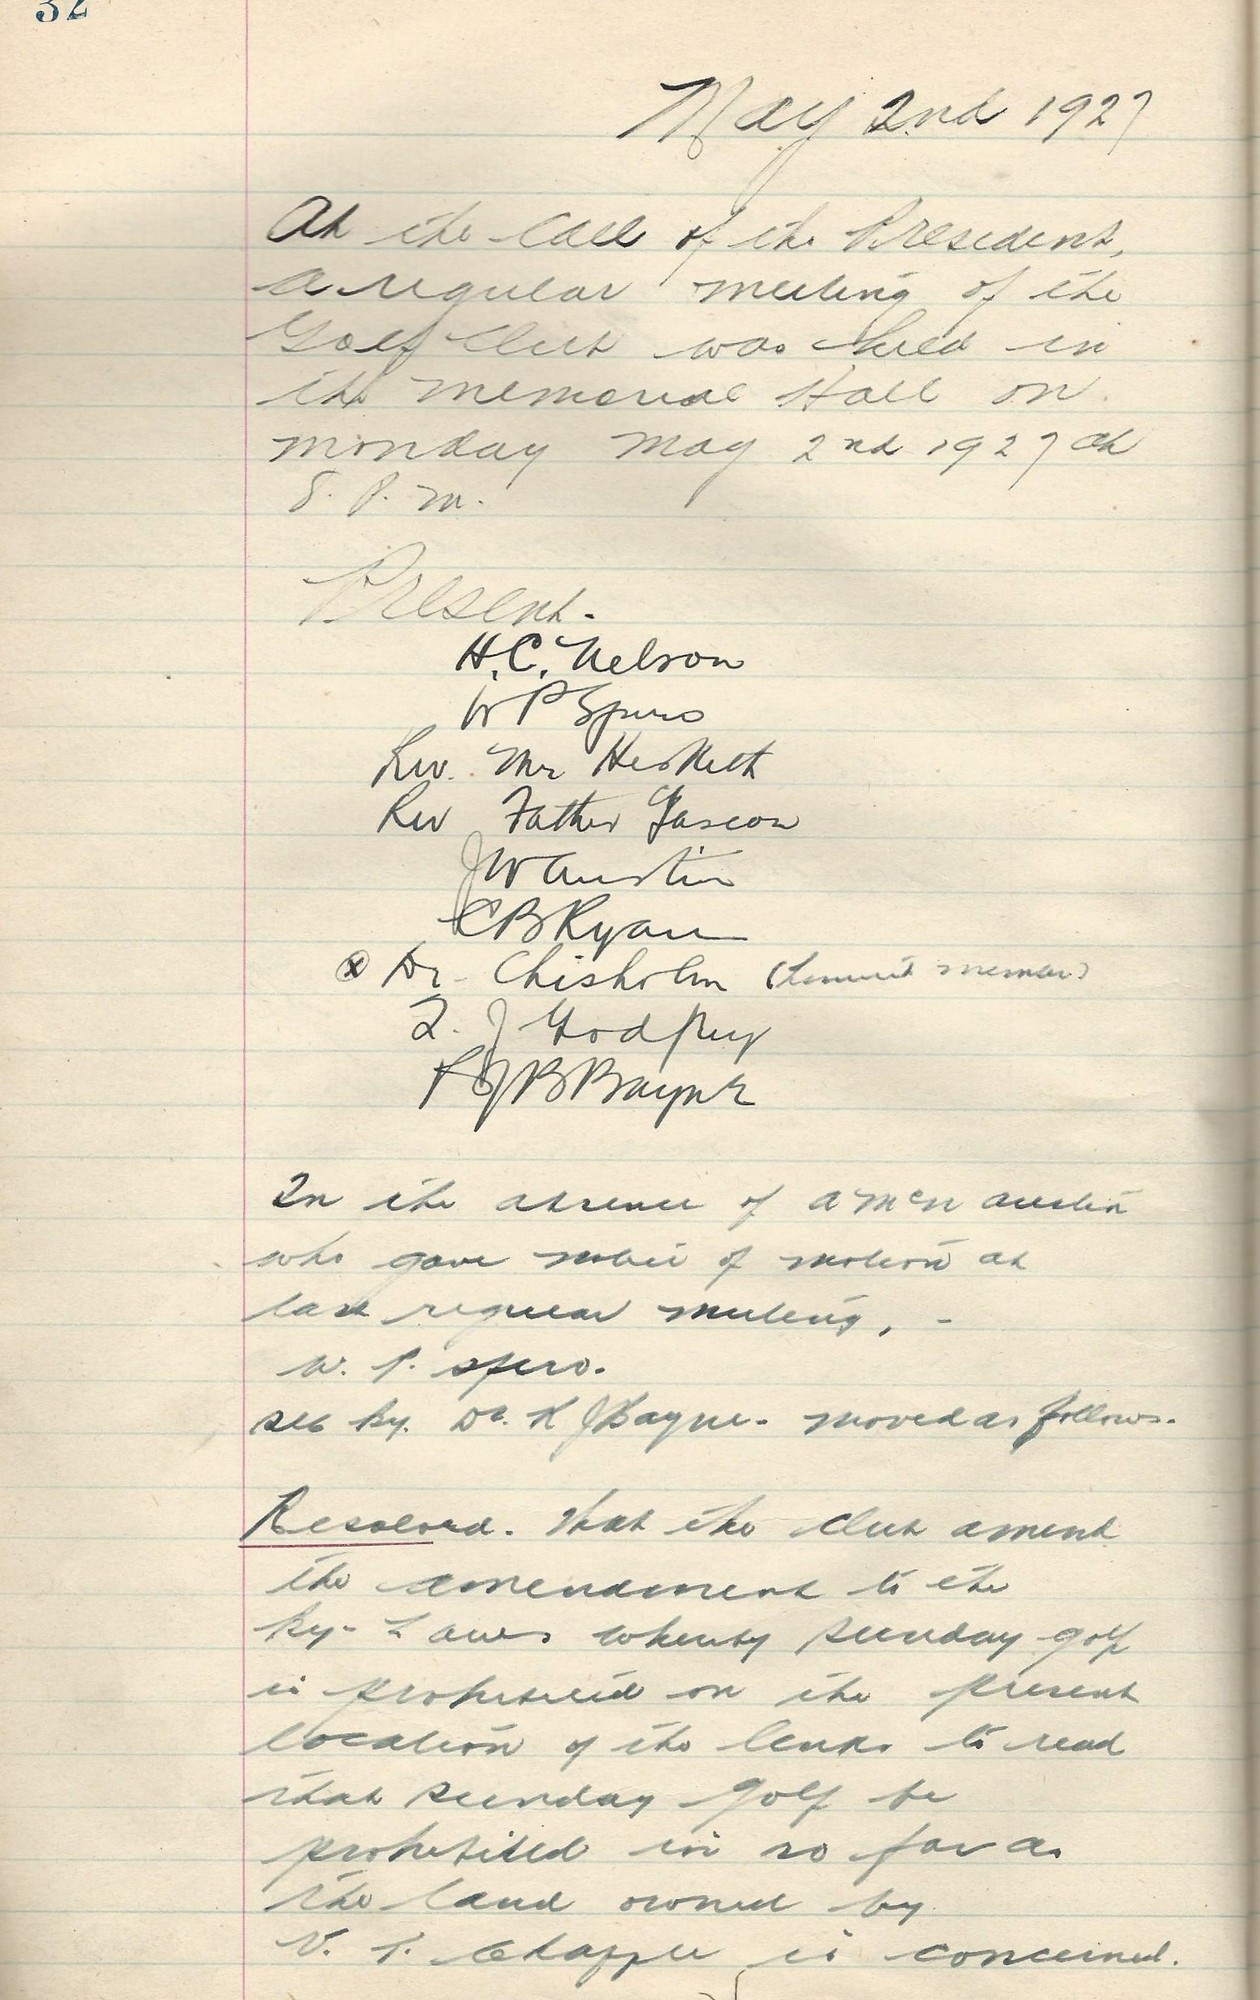 32
May 2nd 1927
At the Call of the President,
a regular meeting of the
Golf Club was held in
the Memorial Hall on
Monday May 2nd 1927 at
8. P. M.
Present.
H.C. Nelson
W P Spero
Rev. Mr Hesketh
Rev Father Gascon
J W Austin
C B Ryan
x Dr. Chisholm ( member)
T. J Godfrey
R J B Bayne
In the absence of A McN Austin
who gave notice of motion at
last regular meeting, -
W. P. Spero.
sec by. Dr. R J Bayne. moved as follows.
Resolved. that the Club amend
the amendment to the
By-Laws whereby Sunday golf
is prohibited on the present
location of the links to read
that Sunday golf be
prohibited in so far as
the land owned by
V. T. Chapple is concerned.